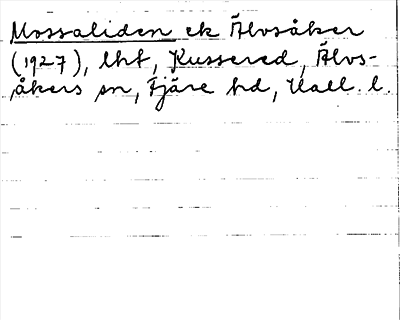 Mossaliden ek Älvsåker
(1927), lht, Kussered, Älvs-
åkers sn, Fjäre hd, Hall. l.